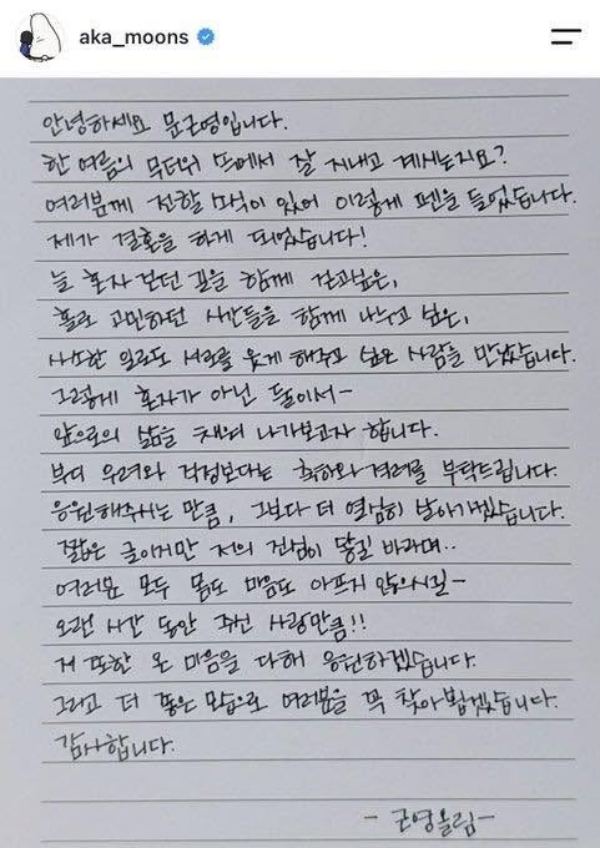 aka_moons
안녕하세요 문근영입니다.
한 여름의 무더위 속에서 잘 지내고 계시는지요?
여러분께 전할 소식이 있어 이렇게 펜을 들었습니다.
제가 결혼을 하게 되었습니다!
늘 혼자 걷던 길을 함께 걷고싶은,
홀로 고민하던 시간들을 함께 나누고 싶은,
사소한 일로도 서로를 웃게 해주고 싶은 사람을 만났습니다.
그렇게 혼자가 아닌 둘이서-
앞으로의 삶을 채워 나가보고자 합니다.
부디 우려와 걱정보다는 축하와 격려를 부탁드립니다.
응원해주시는 만큼, 그보다 더 열심히 살아가겠습니다.
짧은 글이지만 저의 진심이 닿길 바라며..
여러분 모두 몸도 마음도 아프지 않으시길-
오랜 시간 동안 주신 사랑만큼!!
저 또한 온 마음을 다해 응원하겠습니다.
그리고 더 좋은 모습으로 여러분을 꼭 찾아뵙겠습니다.
감사합니다.
- 근영올림-